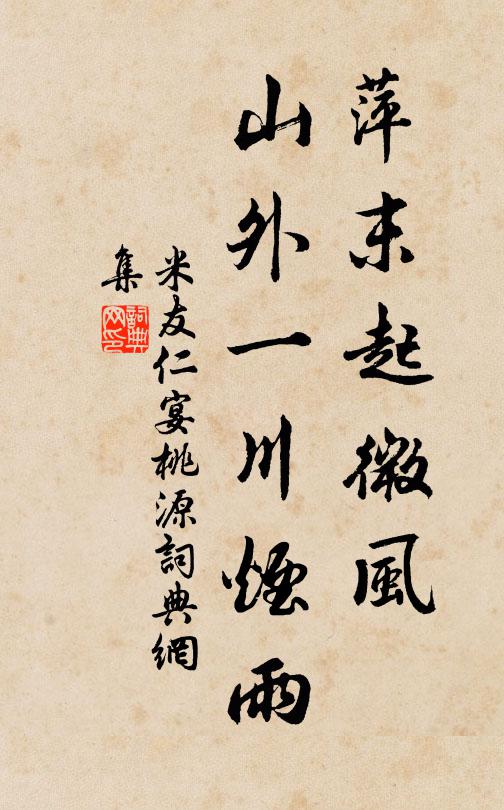 萍末起微風
山外一川煙雨
米友仁宴桃源詞典網
集
詞典
网印